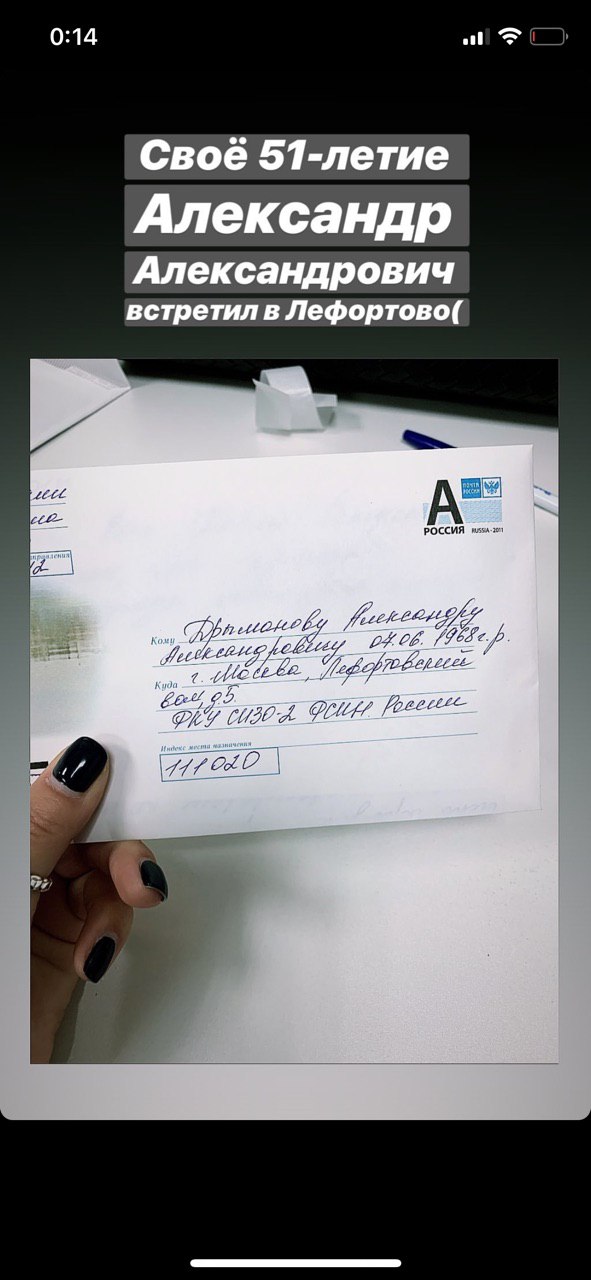 0:14
Своё 51-летие
Александр
Александрович
встретил в Лефортово(
ПОЧТА РОССИИ
А
РОССИЯ RUSSIA - 2011
12
Кому Дрыманову Александру
Александровичу 07.06. 1968 г.р.
Куда г. Москва, Лефортовский
вал, д5.
ФКУ СИЗО-2 ФСИН России
Индекс места назначения
111020